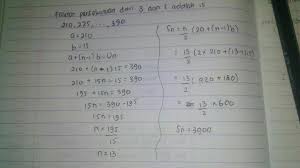 Faktor persekutuan dari 3 dan 5 adalah 15
210, 225, ..., 390
a = 210
b = 15
a + (n-1) b = Un
210 + (n-1) 15 = 390
210 + 15n - 15 = 390
195 + 15n = 390
15n = 390 - 195
15n = 195
n = 195
15
n = 13
Sn = n/2 (2a + (n-1) b)
= 13/2 (2 x 210 + (13-1) 15)
= 13/2 (420 + 180)
= 13/2 x 600
Sn = 3900